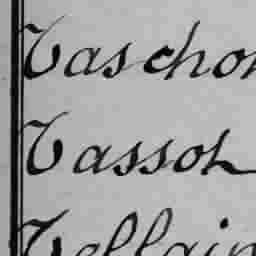 Taschon
Tassot
Tellain